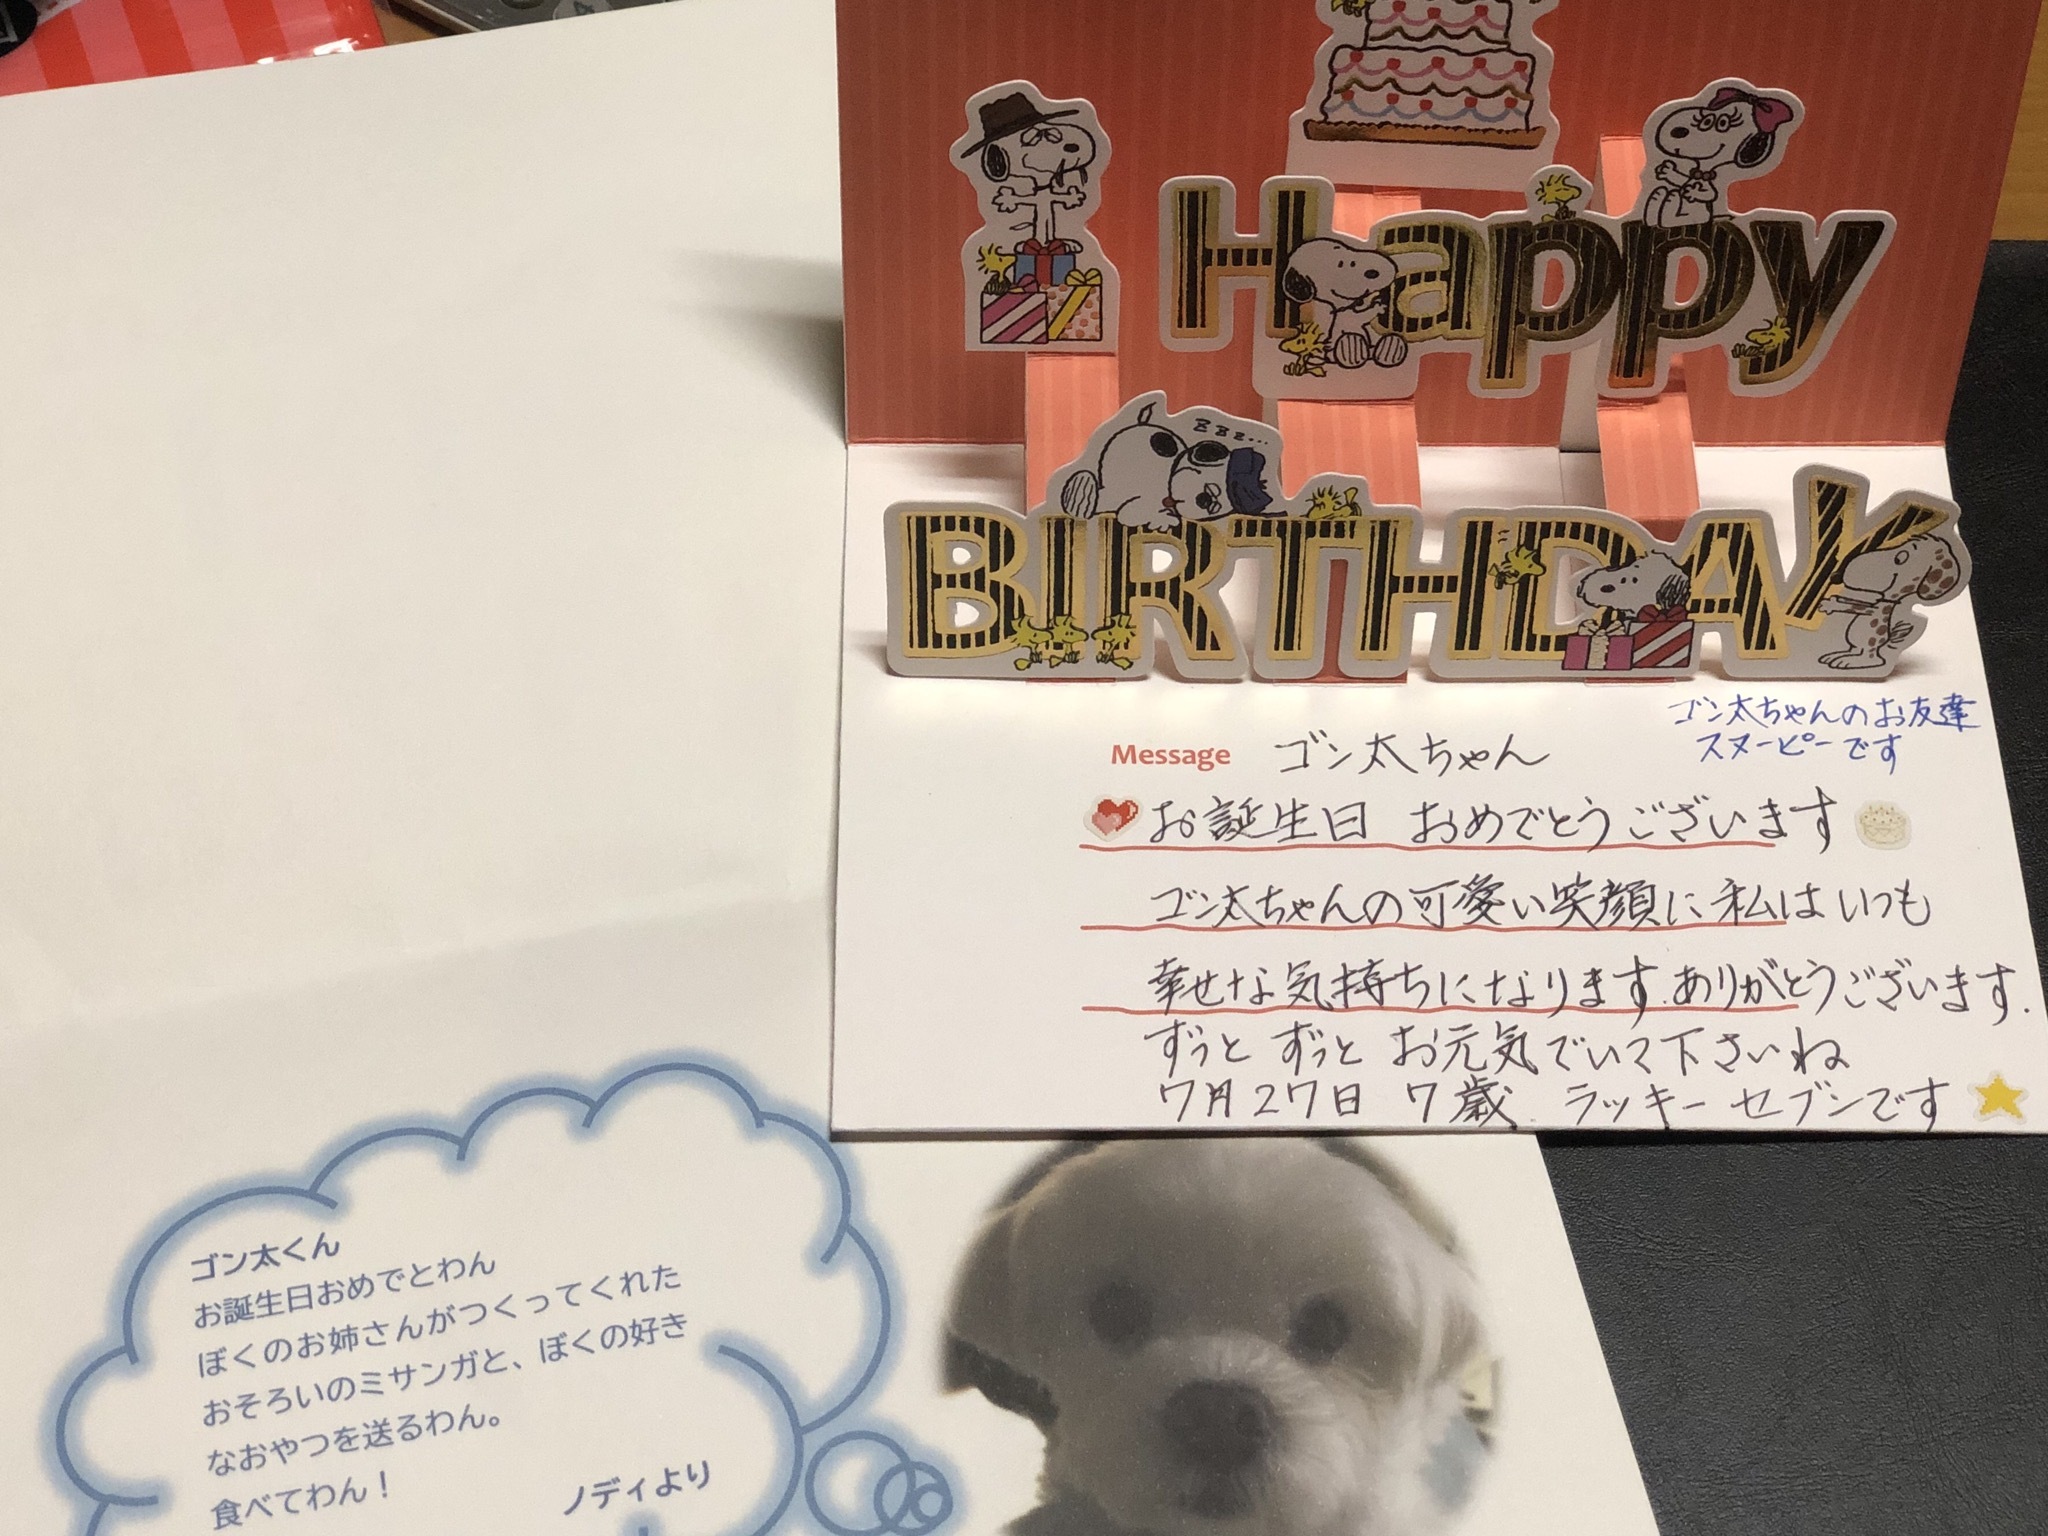 Happy
zzz...
BIRTHDAY
ゴン太ちゃんのお友達
スヌーピーです
Message ゴン太ちゃん
お誕生日 おめでとうございます
ゴン太ちゃんの可愛い笑顔に私はいつも
幸せな気持ちになります.ありがとうございます.
ずっと ずっと お元気でいて下さいね
7月27日 7歳. ラッキーセブンです
ゴン太くん
お誕生日おめでとわん
ぼくのお姉さんがつくってくれた
おそろいのミサンガと、ぼくの好き
なおやつを送るわん。
食べてわん！
ノディより